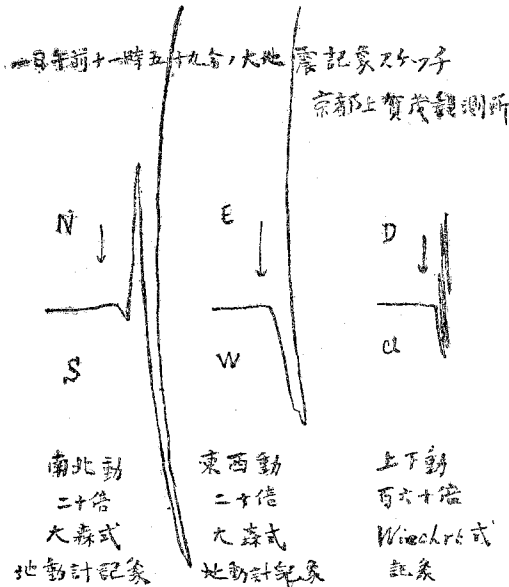 一日午前十一時五十九分、大地震記象スケッチ
京都上賀茂観測所
N
S
E
W
D
U
南北動
二十倍
大森式
地動計記象
東西動
二十倍
大森式
地動計記象
上下動
百六十倍
Wiechert式
記象